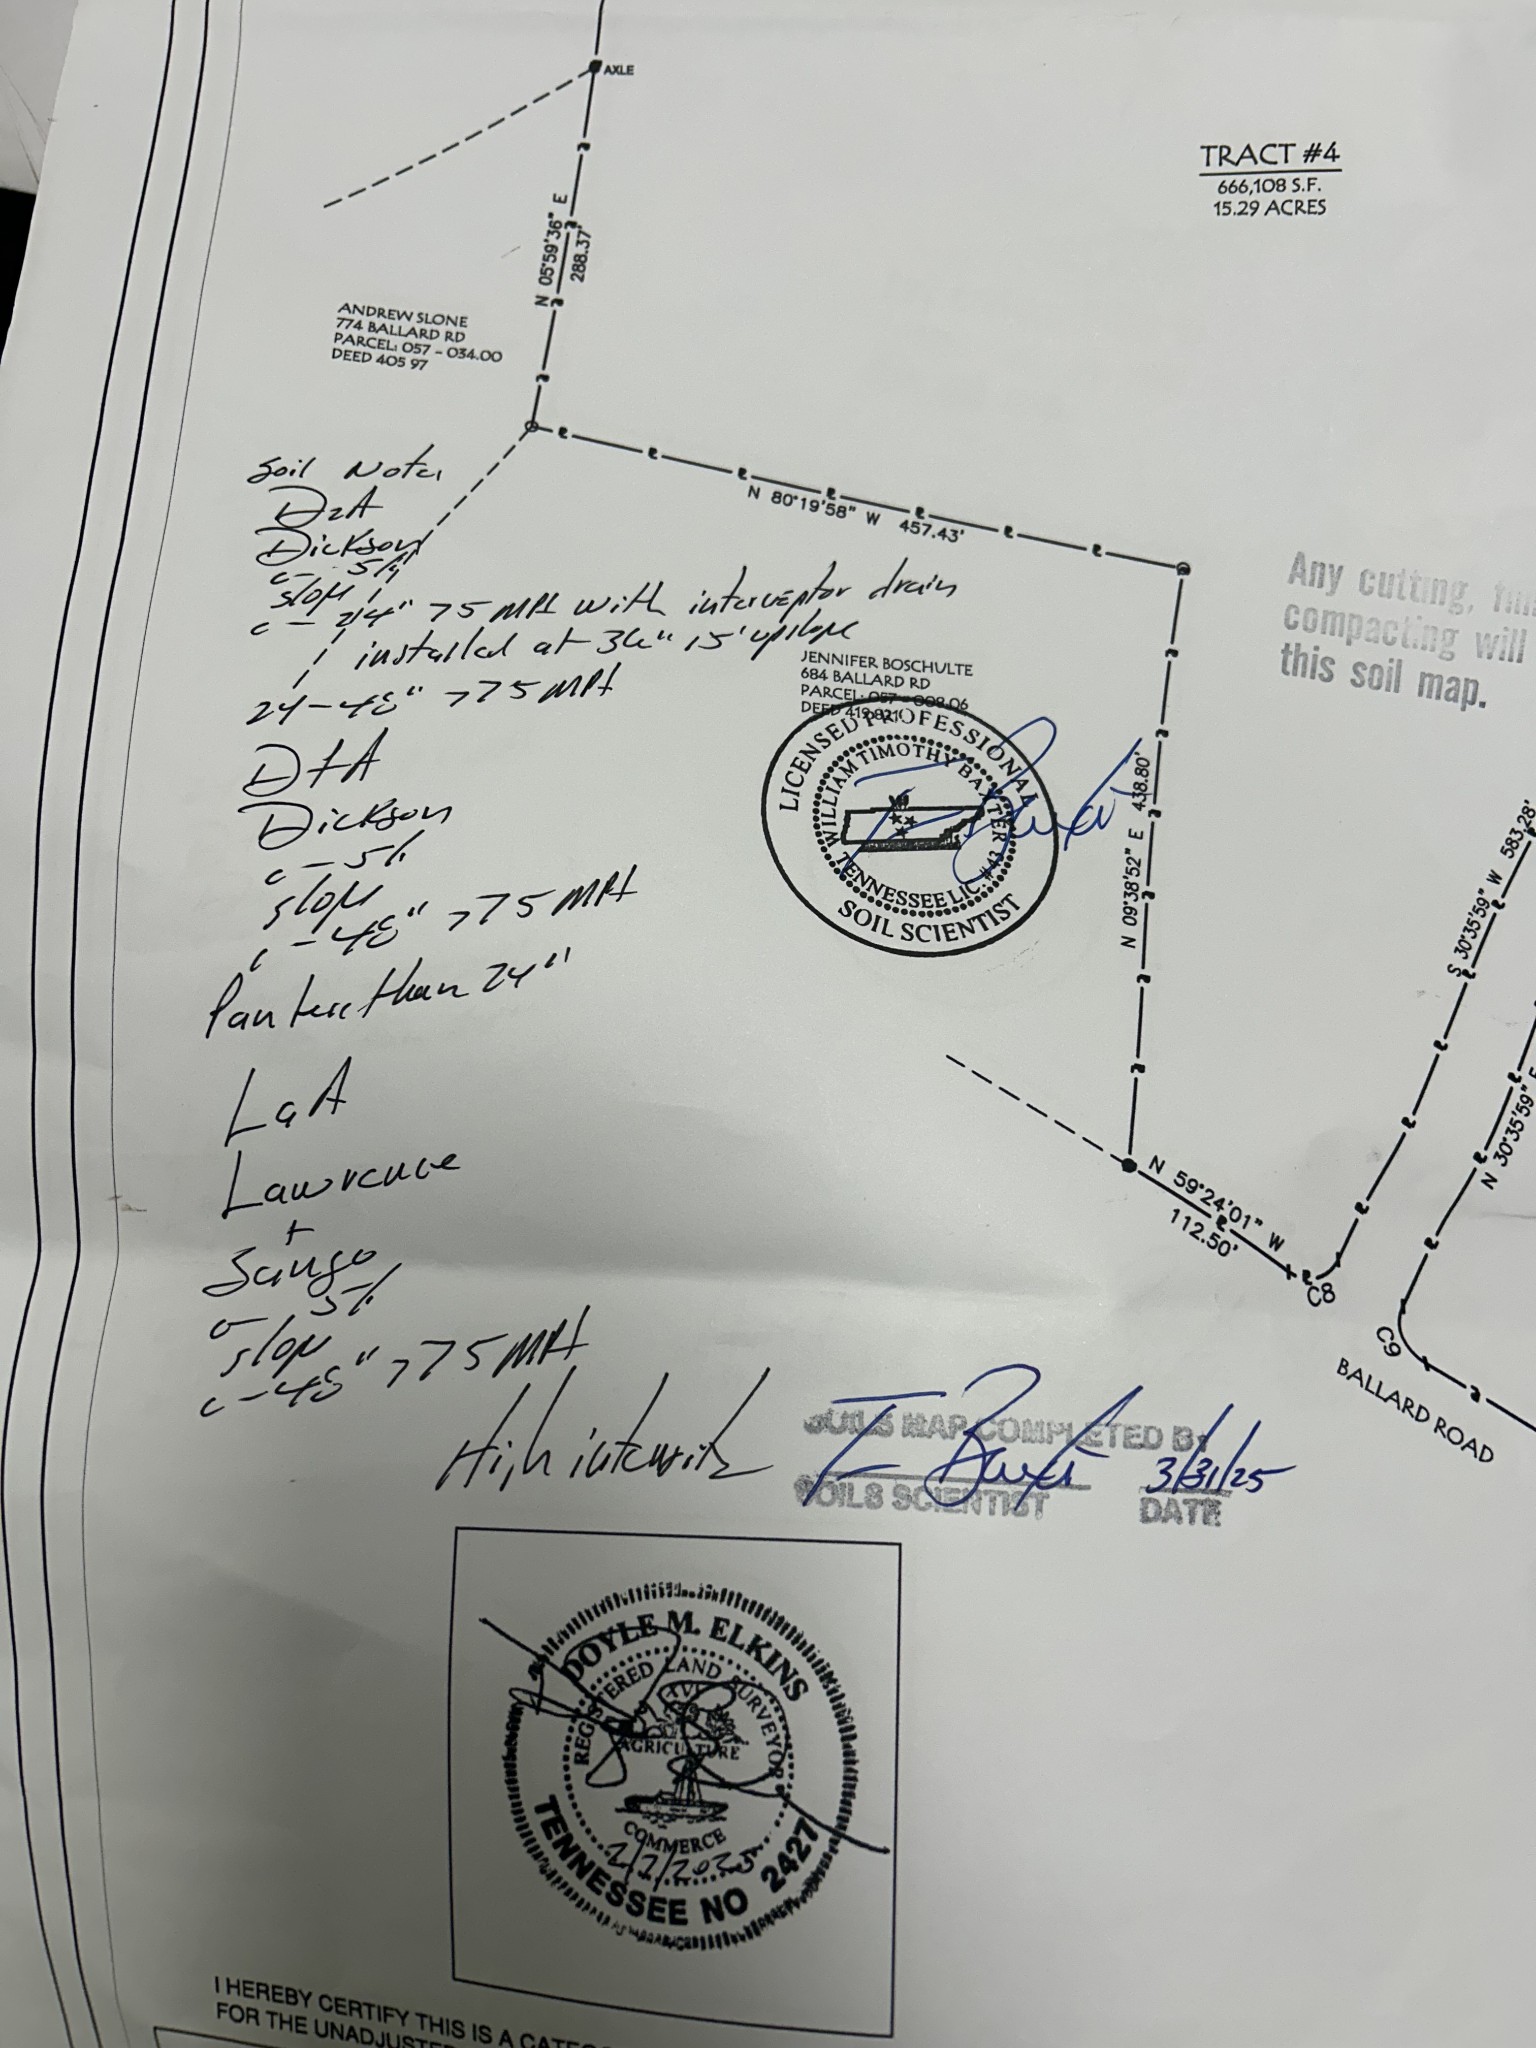 AXLE
TRACT #4
666,108 S.F.
15.29 ACRES
N 05°59'36" E
288.37'
ANDREW SLONE
774 BALLARD RD
PARCEL: 057 - 034.00
DEED 405 97
N 80°19'58" W 457.43'
Soil Notes
DzA
Dickson
0-5%
slope
0-24" 75 MPI with interceptor drain
installed at 36" 15' upslope
24-48" >75 MPI
D+A
Dickson
0-5%
slope
0-48" >75 MPI
Pan less than 24"
LaA
Lawrence
+
Sango
0-5%
slope
0-48" >75 MPI
High intensity
Any cutting,
compacting will
this soil map.
JENNIFER BOSCHULTE
684 BALLARD RD
PARCEL: 057 - 008.06
DEED 419 821
LICENSED PROFESSIONAL
WILLIAM TIMOTHY BAXTER
TENNESSEE LIC. #43
SOIL SCIENTIST
N 09°38'52" E 438.80'
S 30°35'59" W 583.28'
N 30°35'59" E
N 59°24'01" W
112.50'
C8
C9
BALLARD ROAD
SOILS MAP COMPLETED BY
3/31/25
SOILS SCIENTIST
DATE
DOYLE M. ELKINS
REGISTERED LAND SURVEYOR
XVI
AGRICULTURE
COMMERCE
2/7/2025
TENNESSEE NO 2427
I HEREBY CERTIFY THIS IS A
FOR THE